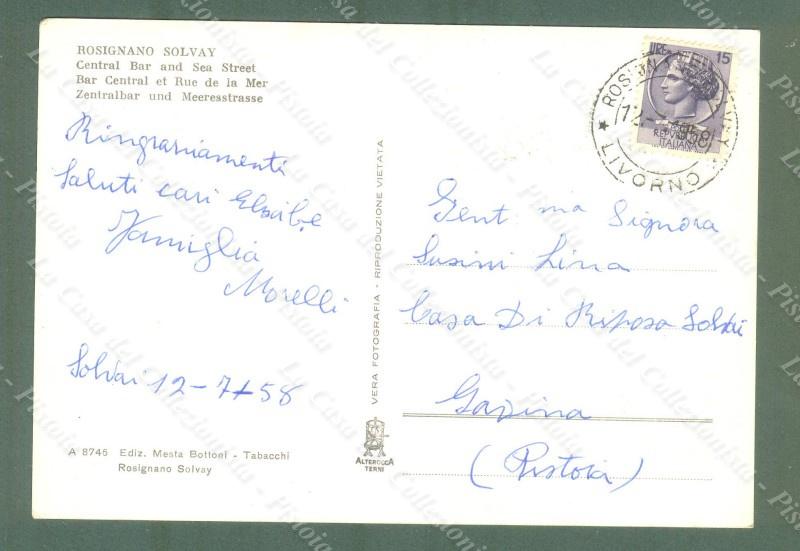 ROSIGNANO SOLVAY
Central Bar and Sea Street
Bar Central et Rue de la Mer
Zentralbar und Meeresstrasse
Ringraniamenti
Saluti cari
Famiglia
Morelli
Solvai 12-7-58
A 8745 Ediz. Mesta Bottoni - Tabacchi
Rosignano Solvay
VERA FOTOGRAFIA - RIPRODUZIONE VIETATA
ALTEROCCA
TERNI
LIRE 15
REPVBBLICA
ITALIANA
ROSIGNANO SOLVAY
12 1958
LIVORNO
Gent ma Signora
Susini Lina
Casa Di Riposa Solvai
Gavina
(Pistoia)
La Casa del Collezionista - Pistoia